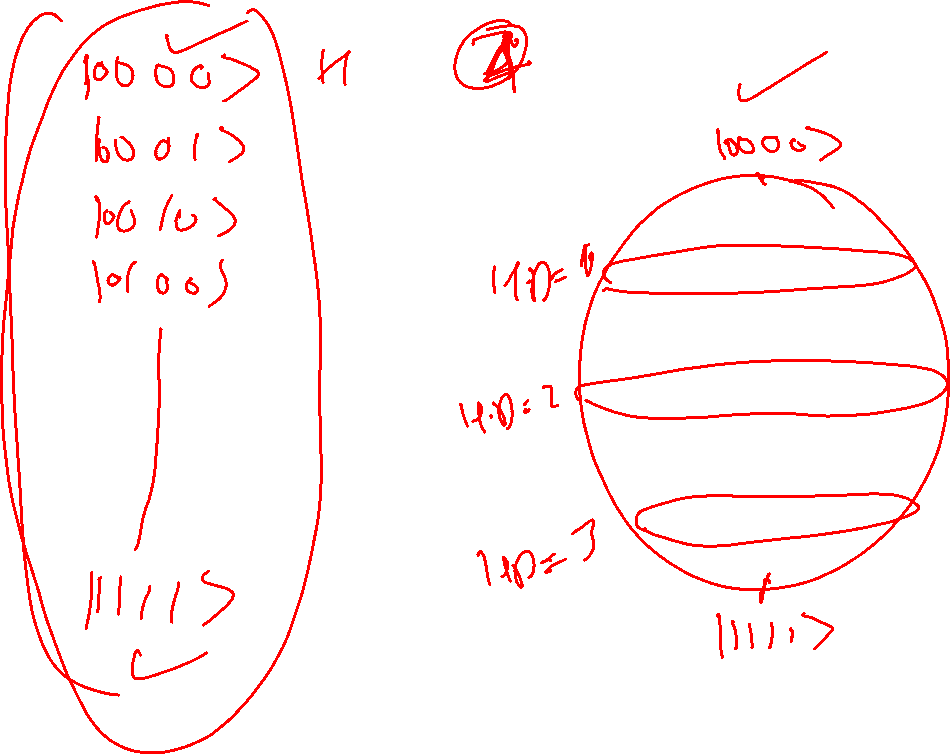 |0000> H
|0001>
|0010>
|0100>
|1111>
|0000>
H.D=
H.D=2
H.D=3
|1111>